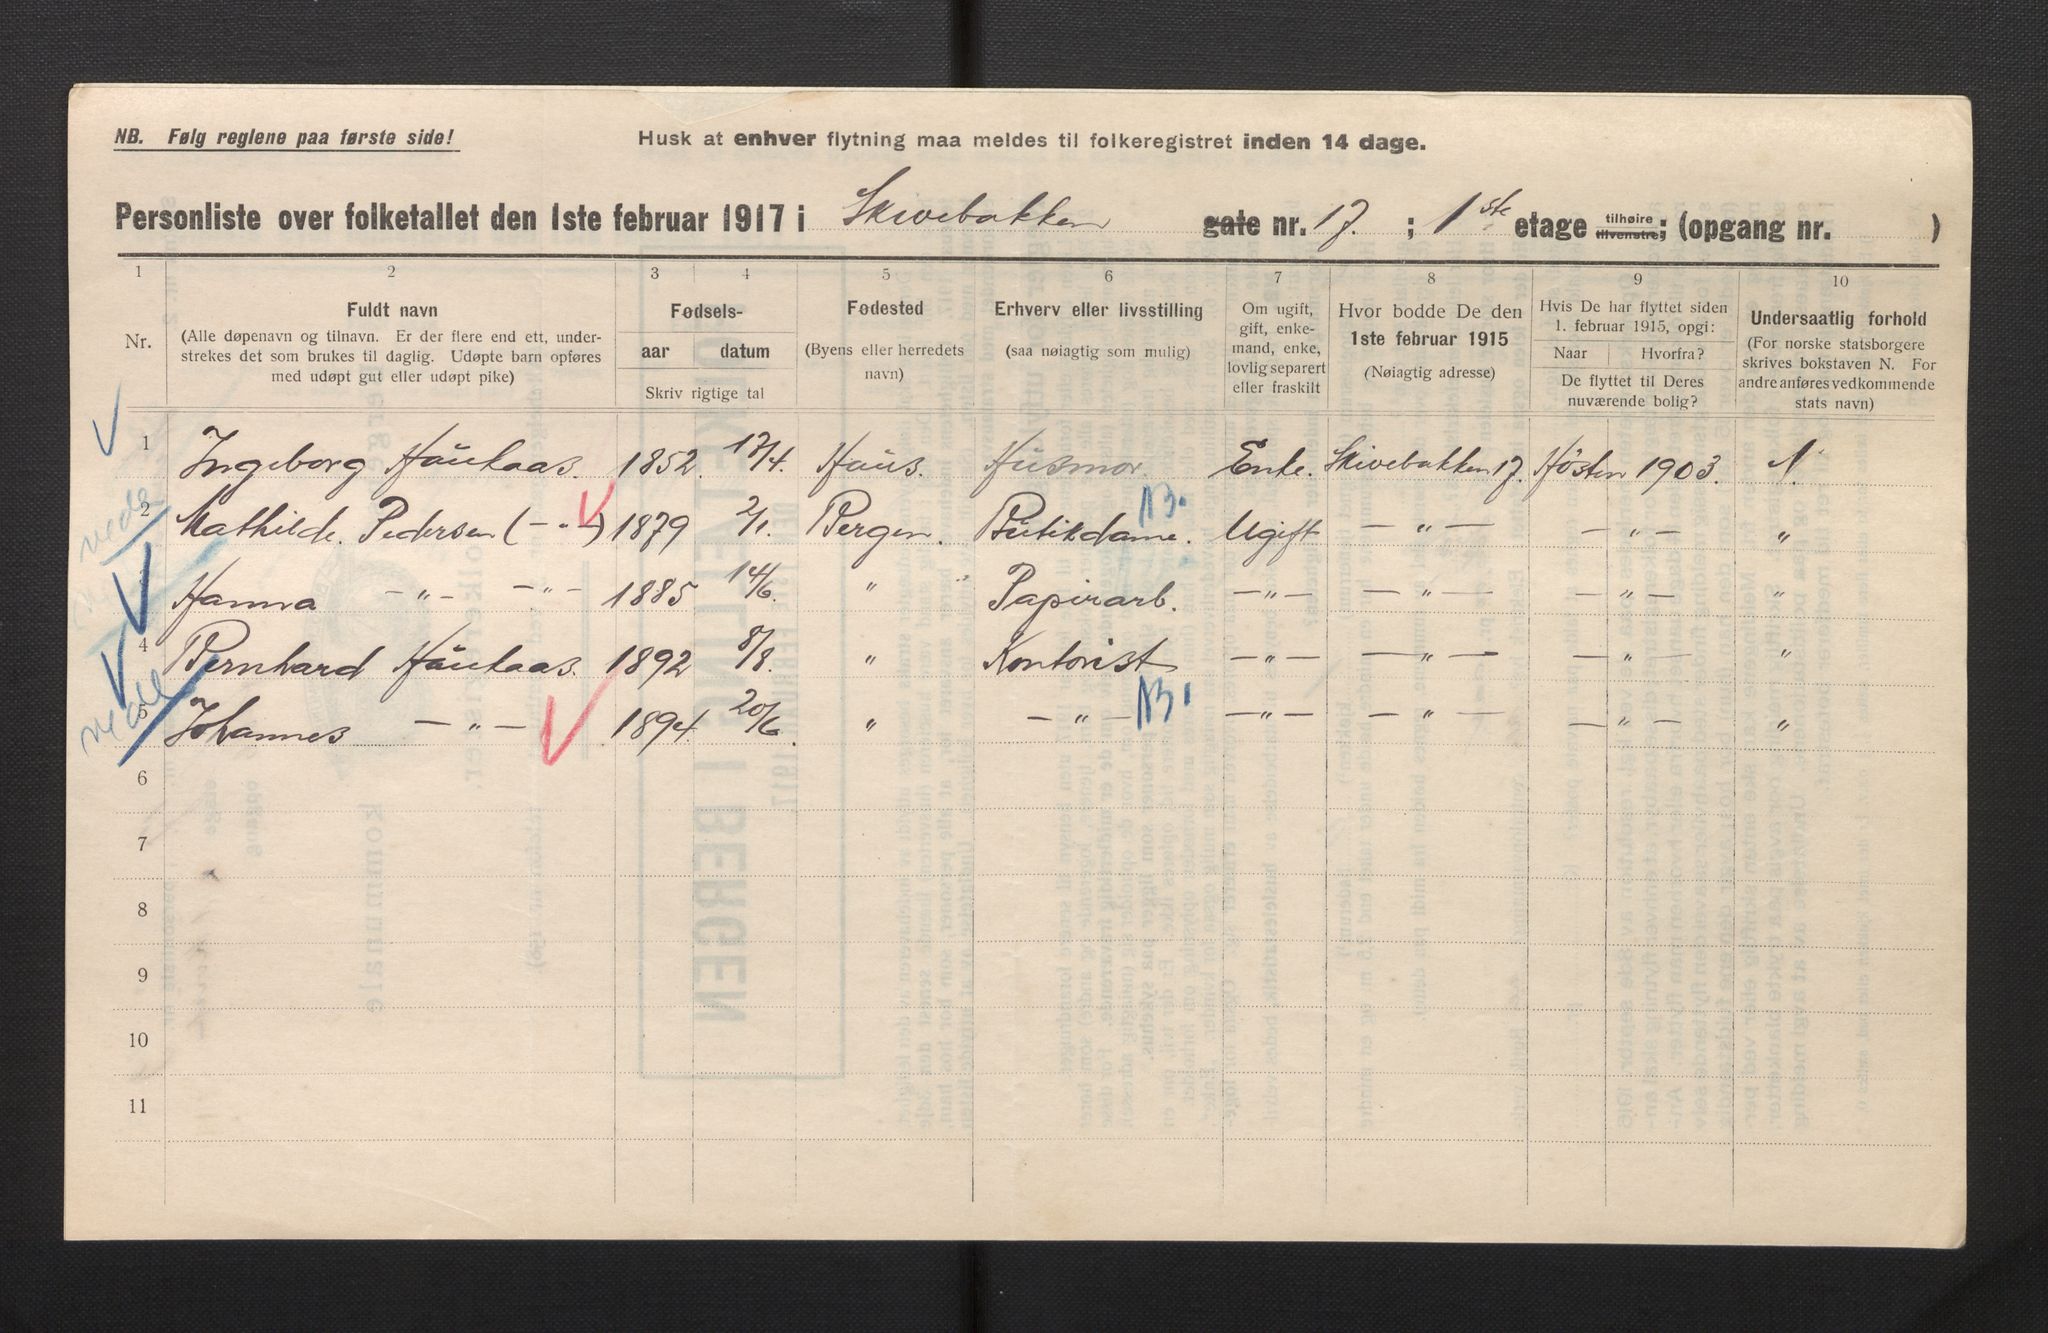 NB. Følg reglene paa første side!
Husk at enhver flytning maa meldes til folkeregistret inden 14 dage.
Personliste over folketallet den 1ste februar 1917 i Skivebakken gate nr. 17. ; 1ste etage tilhøire tilvenstre; (opgang nr. )
1 2 3 4 5 6 7 8 9 10
Nr.
Fuldt navn
(Alle døpenavn og tilnavn. Er der flere end ett, under-
strekes det som brukes til daglig. Udøpte barn opføres
med udøpt gut eller udøpt pike)
Fødsels-
aar datum
Skriv rigtige tal
Fødested
(Byens eller herredets
navn)
Erhverv eller livsstilling
(saa nøiagtig som mulig)
Om ugift,
gift, enke-
mand, enke,
lovlig separert
eller fraskilt
Hvor bodde De den
1ste februar 1915
(Nøiagtig adresse)
Hvis De har flyttet siden
1. februar 1915, opgi:
Naar Hvorfra?
De flyttet til Deres
nuværende bolig?
Undersaatlig forhold
(For norske statsborgere
skrives bokstaven N. For
andre anføres vedkommende
stats navn)
1 Ingeborg Haukaas. 1852. 17/4. Haus. Husmor. Enke. Skivebakken 17. Høsten 1903. N.
2 Mathilde Pedersen (-„-) 1879 2/1. Bergen. Butikdame. Ugift -„- -„- „
Hanna -„- -„- 1885 14/6. „ Papirarb. -„- -„- -„- „
4 Bernhard Haukaas. 1892 8/8. „ Kontorist -„- -„- -„- „
5 Johannes -„- 1894. 20/6. „ -„- -„- -„- -„- „
6
7
8
9
10
11